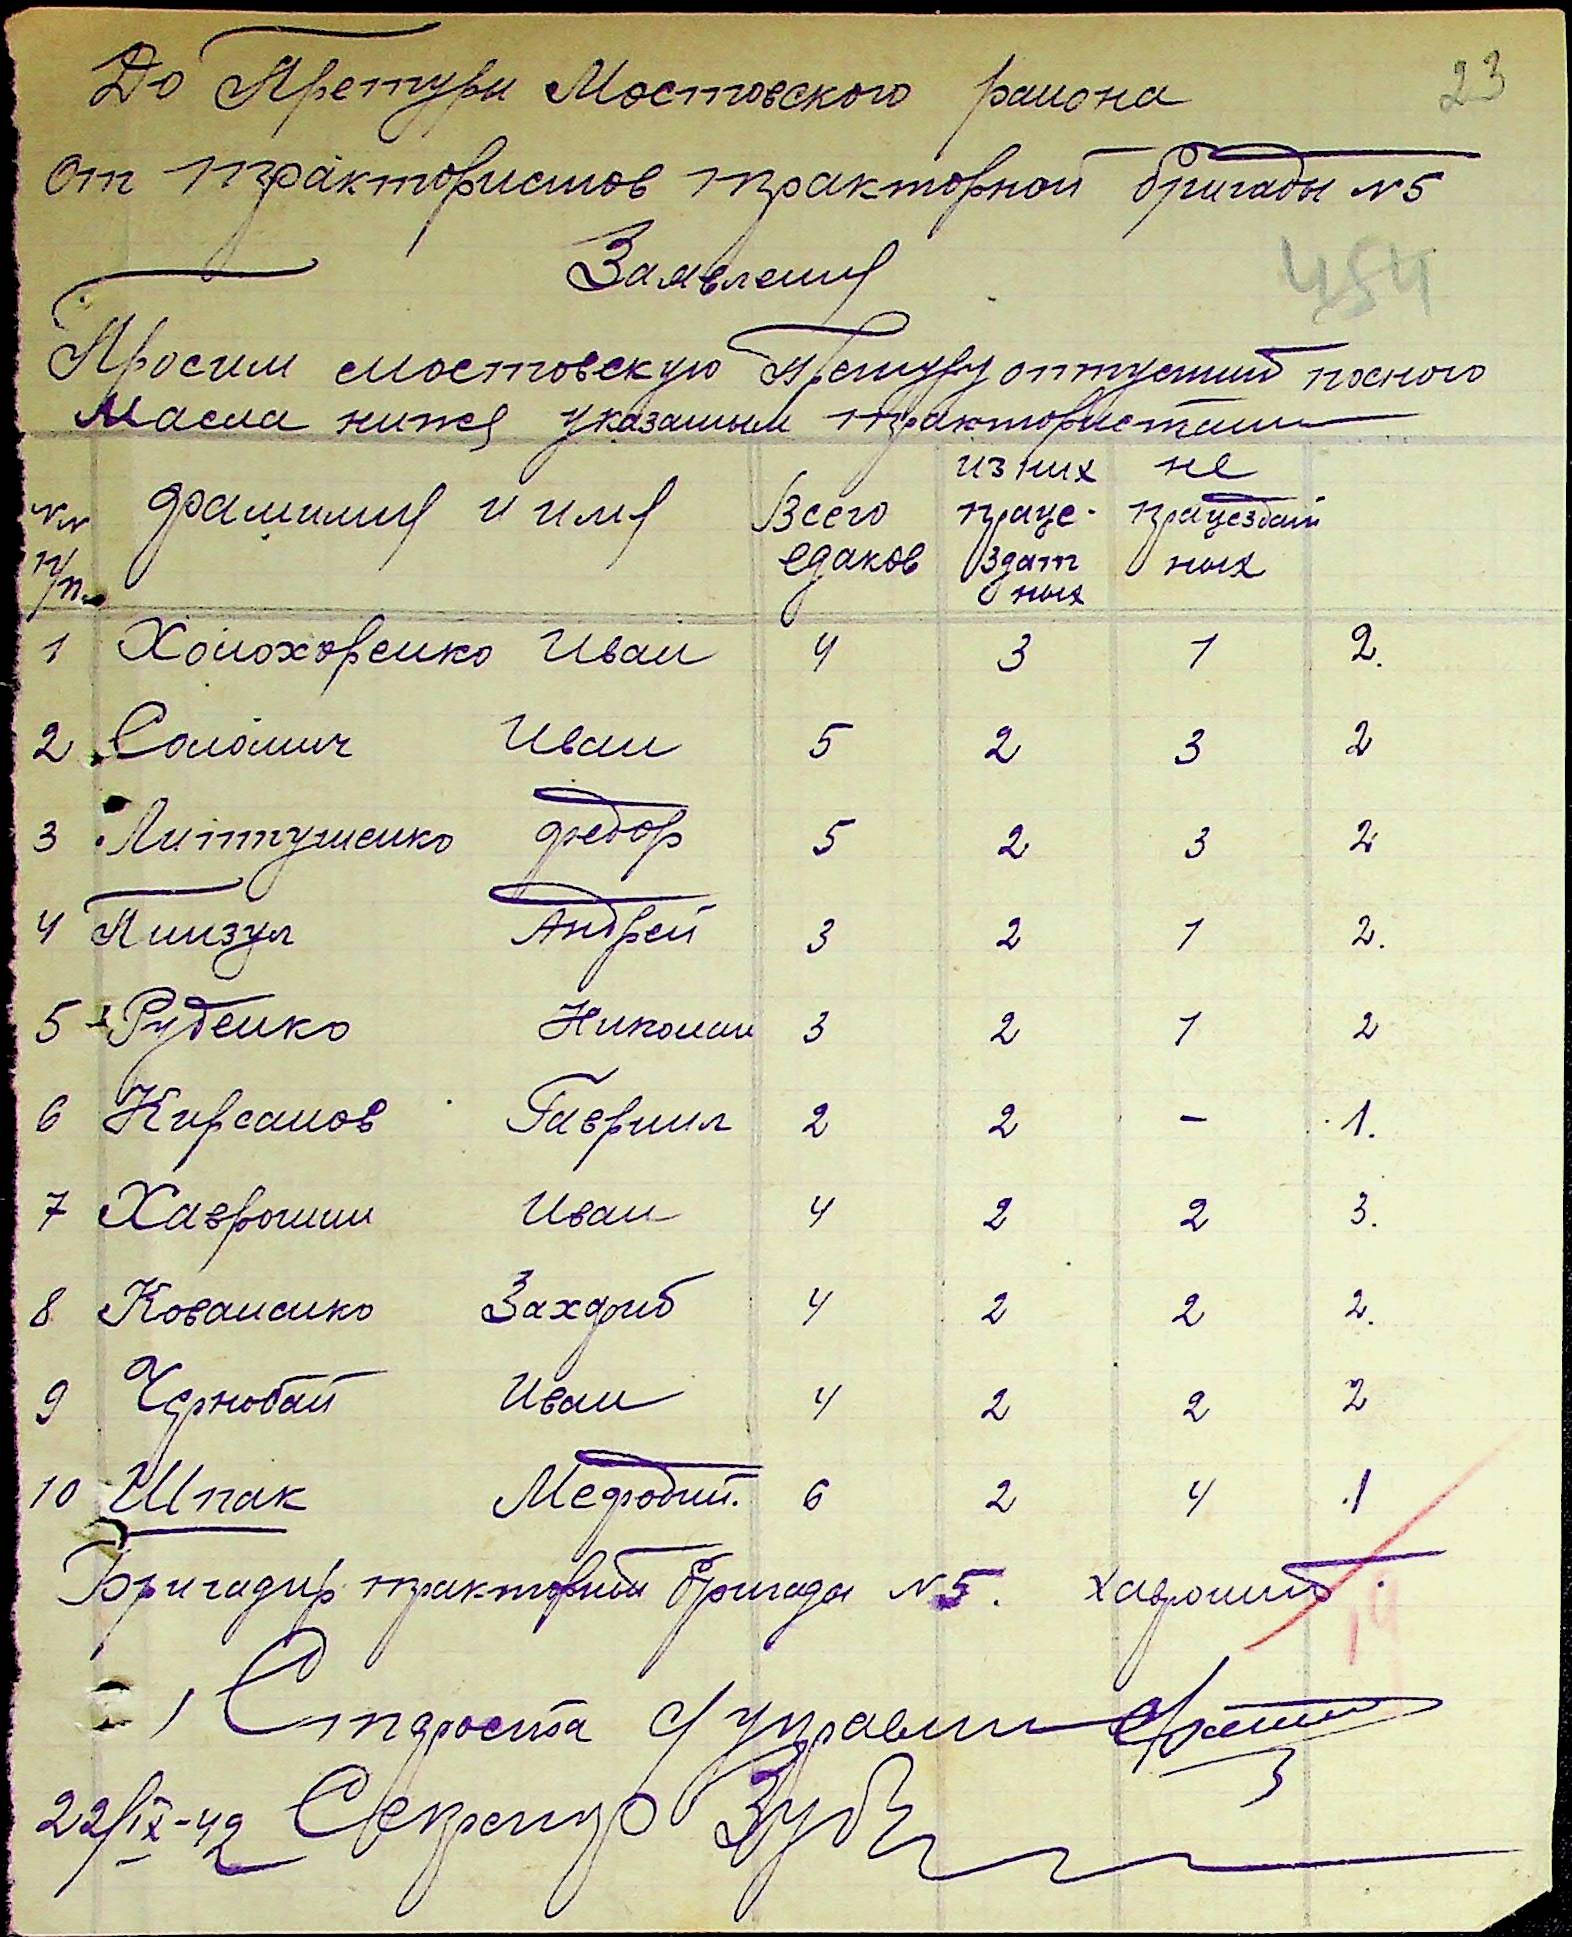 23
До Претуры Мостовского района
От трактористов тракторной бригады №5
454
Заявления
Просим мостовскую Претуру отпустить посного
Масла ниже указаным трактористам
№№ п/п. Фамилия и имя Всего едаков из них працездатных не працездатных
1 Холохоренко Иван 4 3 1 2.
2 Соломич Иван 5 2 3 2
3 Литтушенко Федор 5 2 3 2
4 Пинзул Андрей 3 2 1 2.
5 Руденко Николай 3 2 1 2
6 Кирсанов Гавриил 2 2 – 1.
7 Хаврошин Иван 4 2 2 3.
8 Коваленко Захарий 4 2 2 2.
9 Чернобай Иван 4 2 2 2
10 Шпак Мефодий. 6 2 4 1
Бригадир тракторной бригады №5. Хаврошин
19
Староста с/управы
22/IX-42 Секретар Зуб